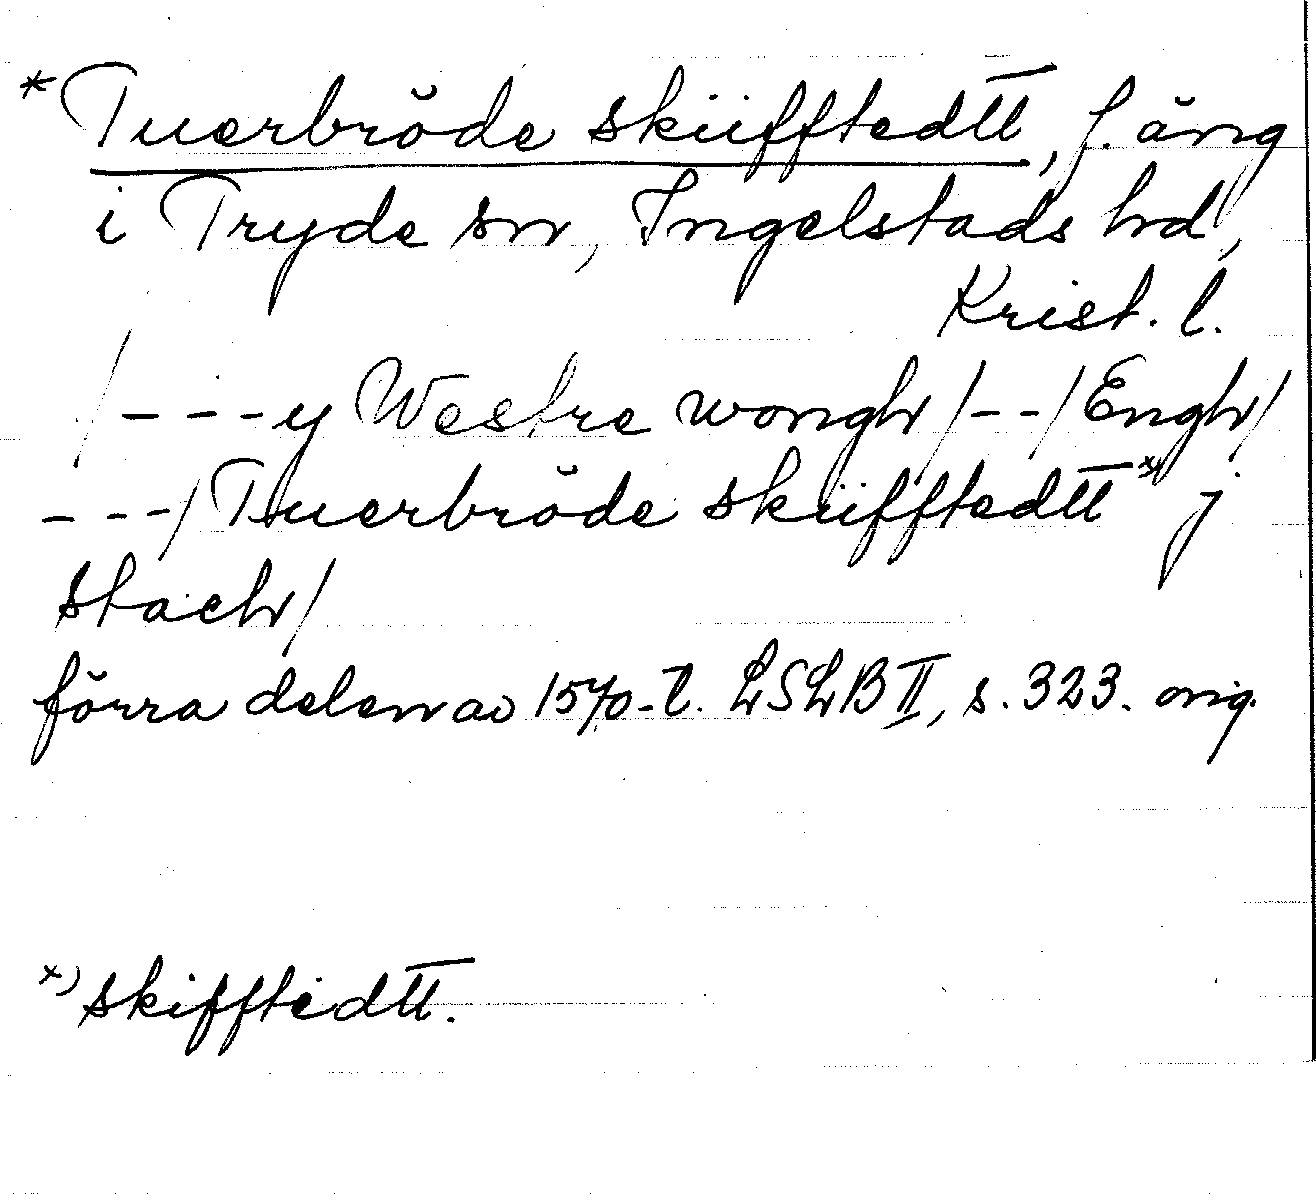 *Tuerbröde skiifftedtt, f. äng
i Tryde sn, Ingelstads hd,
Krist. l.
/---y Westre wongh/--/Engh/
---/Tuerbröde skiifftedtt x) j
stach/
förra delen av 1570-t. LSLB II, s. 323. orig.
x) skifftedtt.